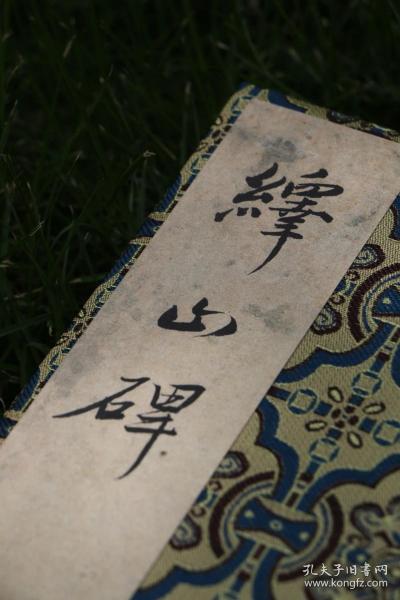 繹山碑
孔夫子旧书网
www.kongfz.com